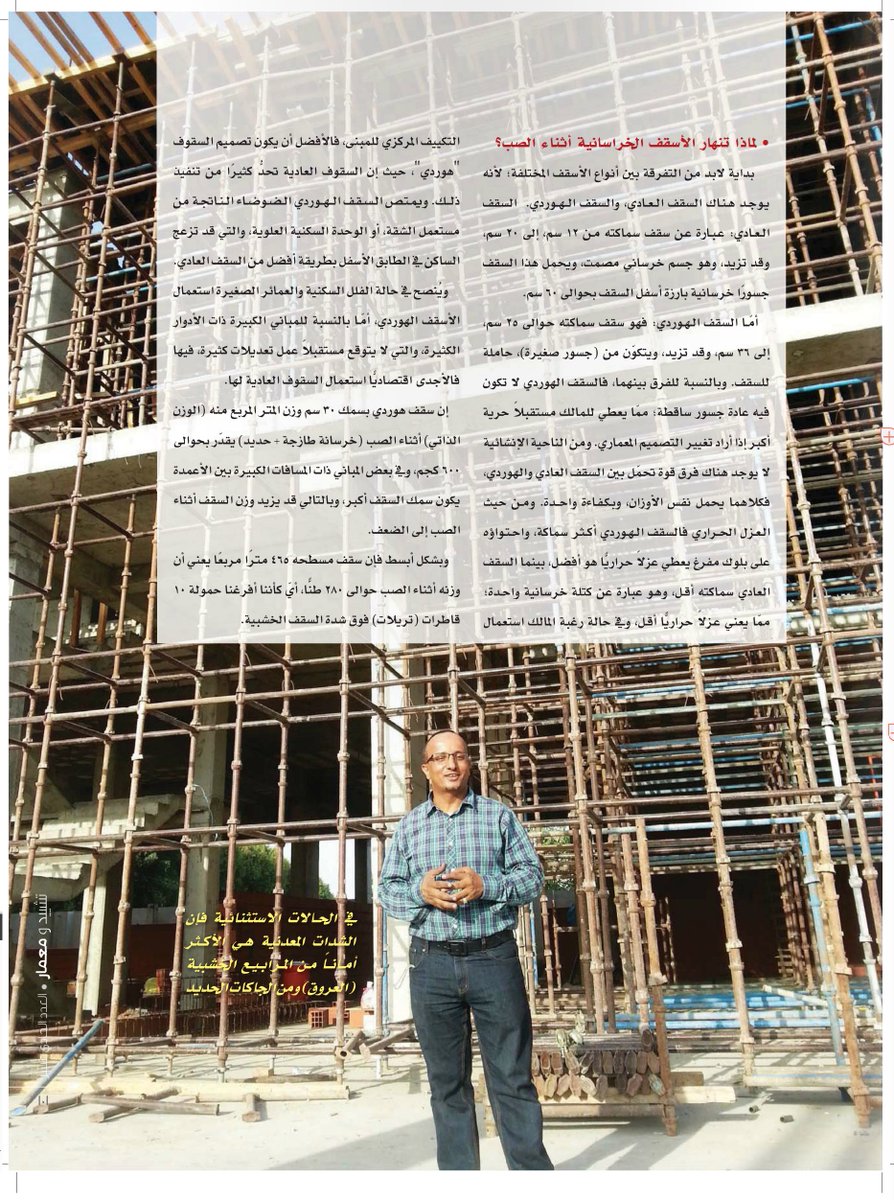 • لماذا تنهار الأسقف الخراسانية أثناء الصب؟
بداية لابد من التفرقة بين أنواع الأسقف المختلفة؛ لأنه
يوجد هناك السقف العادي، والسقف الهوردي. السقف
العادي: عبارة عن سقف سماكته من ١٢ سم، إلى ٢٠ سم،
وقد تزيد، وهو جسم خرساني مصمت، ويحمل هذا السقف
جسورًا خرسانية بارزة أسفل السقف بحوالى ٦٠ سم.
أمّا السقف الهوردي: فهو سقف سماكته حوالى ٢٥ سم،
إلى ٣٦ سم، وقد تزيد، ويتكوّن من (جسور صغيرة)، حاملة
للسقف. وبالنسبة للفرق بينهما، فالسقف الهوردي لا تكون
فيه عادة جسور ساقطة؛ ممّا يعطي للمالك مستقبلاً حرية
أكبر إذا أراد تغيير التصميم المعماري. ومن الناحية الإنشائية
لا يوجد هناك فرق قوة تحمّل بين السقف العادي والهوردي،
فكلاهما يحمل نفس الأوزان، وبكفاءة واحدة. ومن حيث
العزل الحراري فالسقف الهوردي أكثر سماكة، واحتواؤه
على بلوك مفرغ يعطي عزلاً حراريًّا هو أفضل، بينما السقف
العادي سماكته أقل، وهو عبارة عن كتلة خرسانية واحدة؛
ممّا يعني عزلاً حراريًّا أقل، وفي حالة رغبة المالك استعمال
التكييف المركزي للمبنى، فالأفضل أن يكون تصميم السقوف
"هوردي"، حيث إن السقوف العادية تحدُّ كثيرًا من تنفيذ
ذلك. ويمتص السقف الهوردي الضوضاء الناتجة من
مستعمل الشقة، أو الوحدة السكنية العلوية، والتي قد تزعج
الساكن في الطابق الأسفل بطريقة أفضل من السقف العادي.
ويُنصح في حالة الفلل السكنية والعمائر الصغيرة استعمال
الأسقف الهوردي، أمّا بالنسبة للمباني الكبيرة ذات الأدوار
الكثيرة، والتي لا يتوقع مستقبلاً عمل تعديلات كثيرة، فيها
فالأجدى اقتصاديًّا استعمال السقوف العادية لها.
إن سقف هوردي بسمك ٣٠ سم وزن المتر المربع منه (الوزن
الذاتي) أثناء الصب (خرسانة طازجة + حديد) يقدّر بحوالى
٦٠٠ كجم، وفي بعض المباني ذات المسافات الكبيرة بين الأعمدة
يكون سمك السقف أكبر، وبالتالي قد يزيد وزن السقف أثناء
الصب إلى الضعف.
وبشكل أبسط فإن سقف مسطحه ٤٦٥ مترًا مربعًا يعني أن
وزنه أثناء الصب حوالى ٢٨٠ طنًّا، أيّ كأننا أفرغنا حمولة ١٠
قاطرات (تريلات) فوق شدة السقف الخشبية.
في الحالات الاستثنائية فإن
الشدات المعدنية هي الأكثر
أماناً من المرابيع الخشبية
(العروق) ومن الجاكات الحديد
تشييد و معمار • العدد